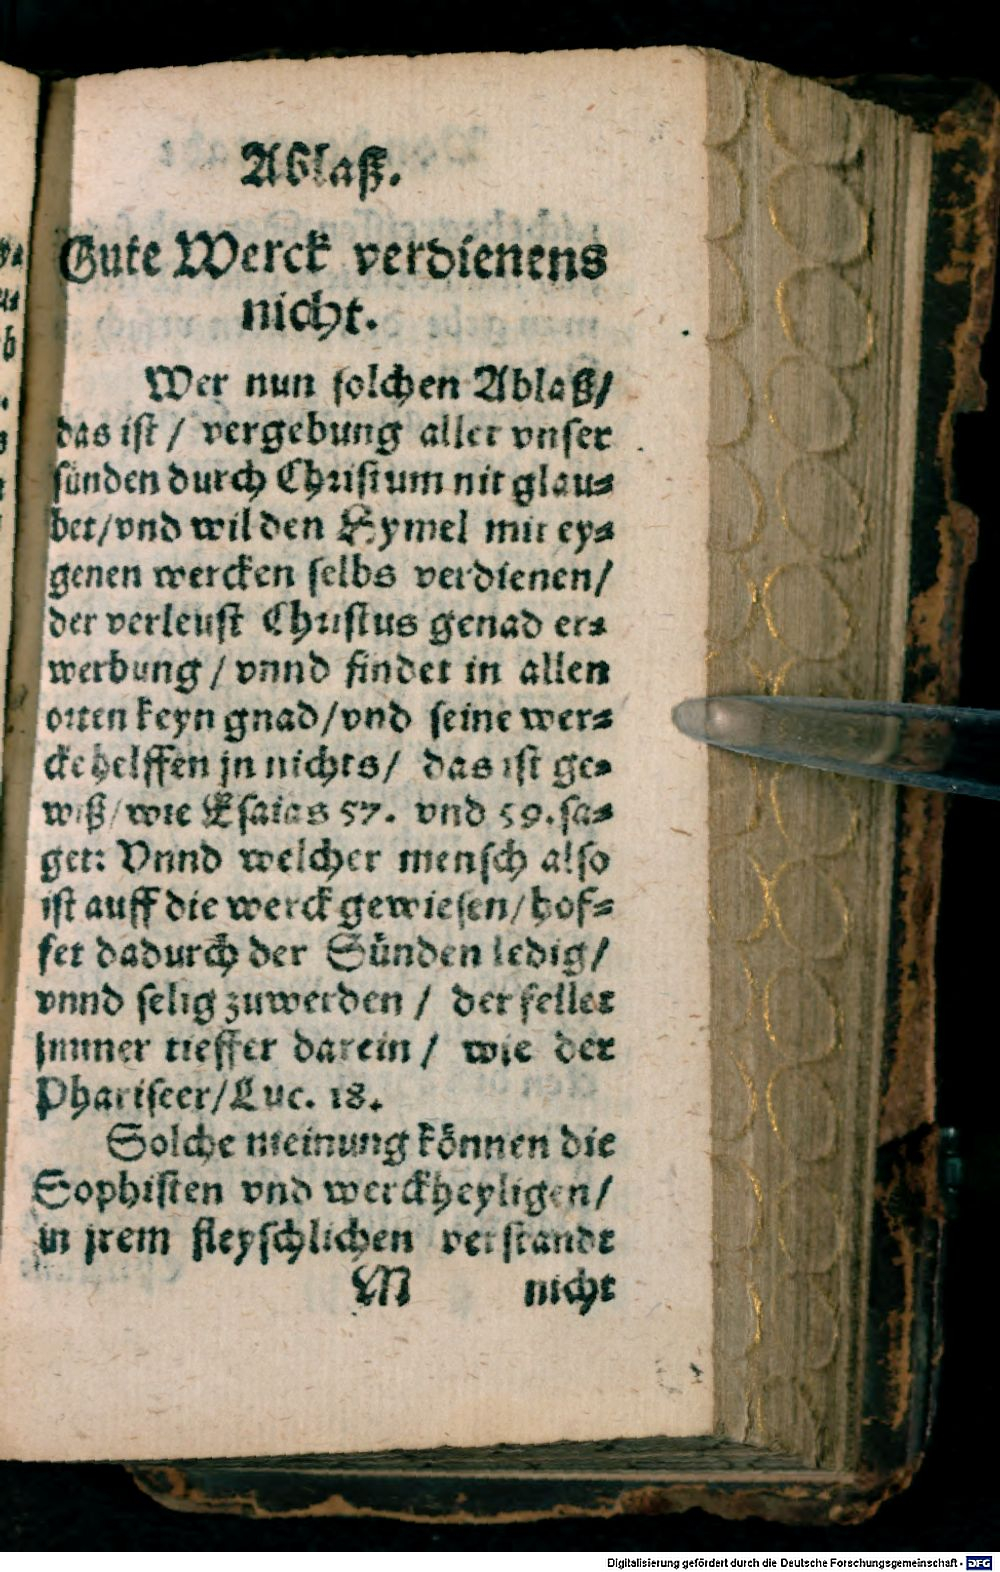 Ablaß.
Gute Werck verdienens
nicht.
Wer nun solchen Ablaß/
das ist / vergebung aller vnser
sünden durch Christum nit glau⸗
bet/vnd wil den Hymel mit ey⸗
genen wercken selbs verdienen/
der verleust Christus genad er⸗
werbung / vnnd findet in allen
orten keyn gnad/vnd seine wer⸗
cke helffen jn nichts/ das ist ge⸗
wiß/wie Esaias 57. vnd 59.sa⸗
get: Vnnd welcher mensch also
ist auff die werck gewiesen/hof⸗
fet dadurch der Sünden ledig/
vnnd selig zuwerden / der fellet
jmmer tieffer darein / wie der
Phariseer/Luc. 18.
Solche meinung können die
Sophisten vnd werckheyligen/
in jrem fleyschlichen verstandt
M nicht
Digitalisierung gefördert durch die Deutsche Forschungsgemeinschaft - DFG